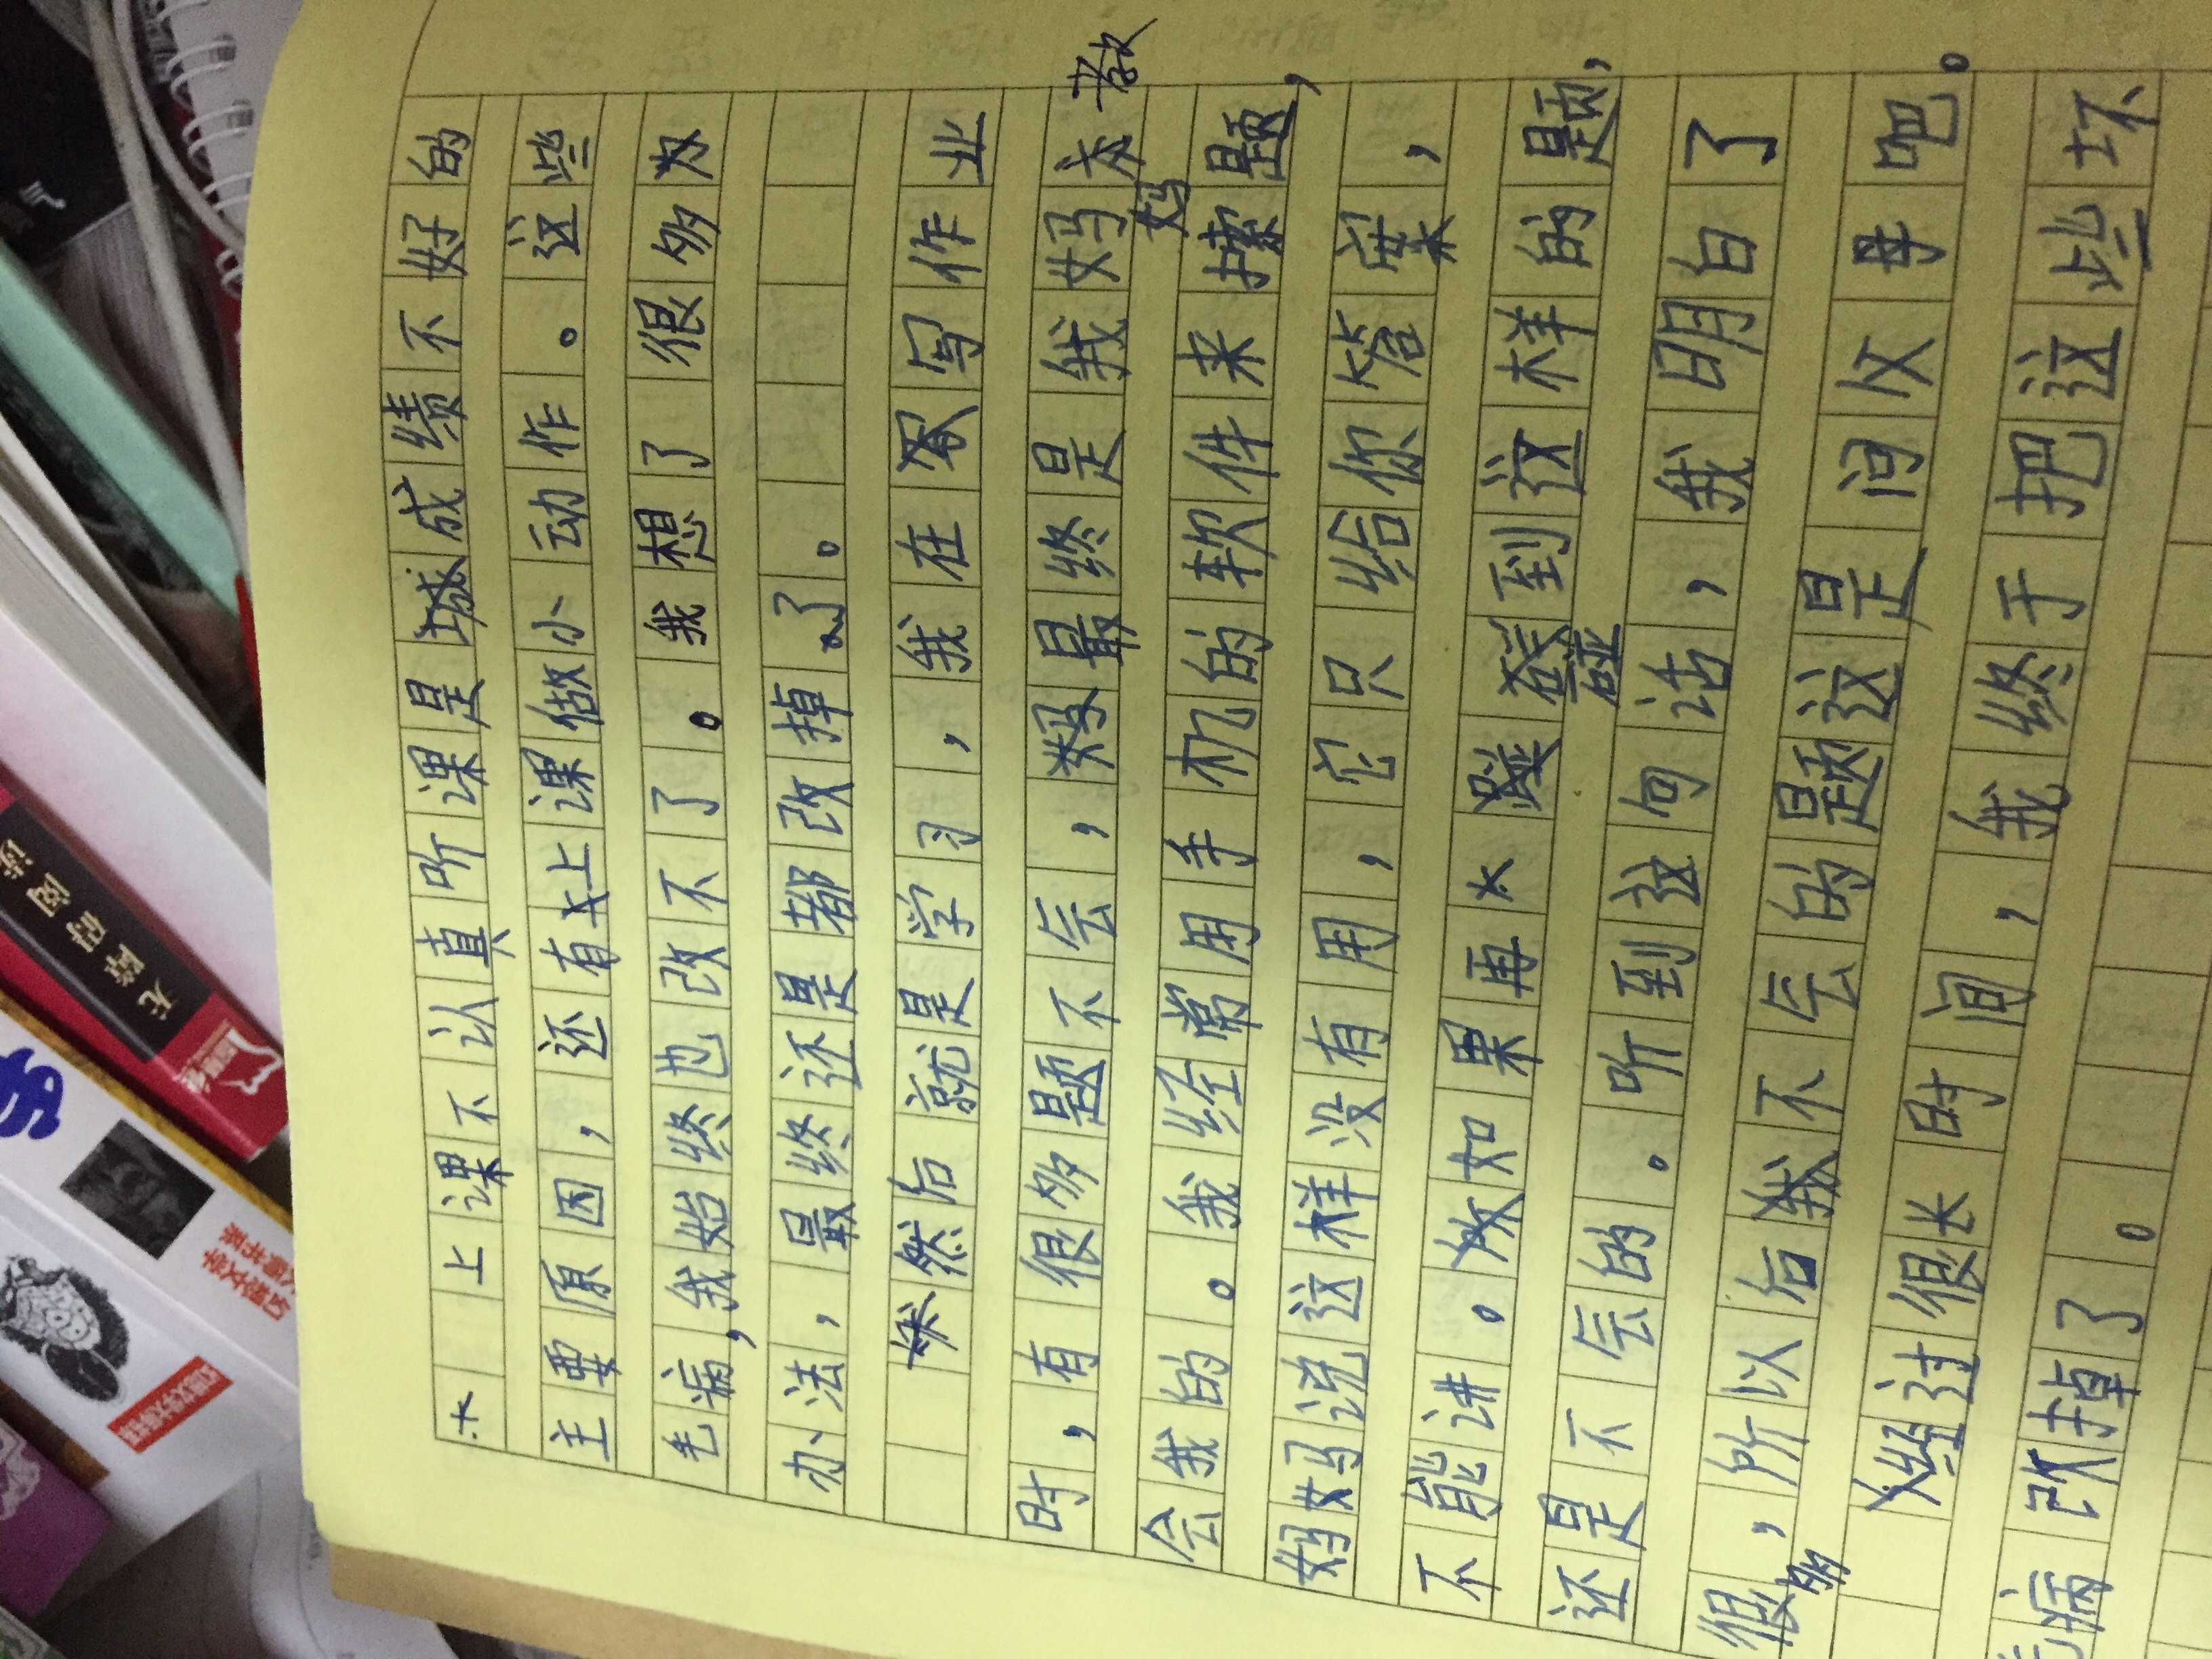 上课不认真听课是成绩不好的
主要原因，还有上课做小动作。这些
毛病，我始终也改不了。我想了很多
办法，最终还是都改掉了。
然后就是学习，我在写作业
时，有很多题不会，最终是我妈妈教
会我的。我经常用手机的软件来搜题，
妈妈说这样没有用，它只给你答案，
不能讲。如果再碰到这样的题，
还是不会的。听到这句话，我明白了
很多，所以后不会的题这是问父母吧。
经过很长时间，我终于把这些坏
毛病改掉了。
无障碍阅读